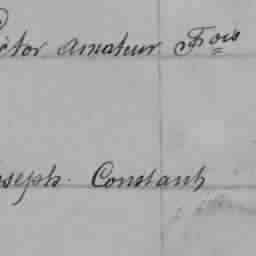 ictor Amateur Frois
oseph. Constant